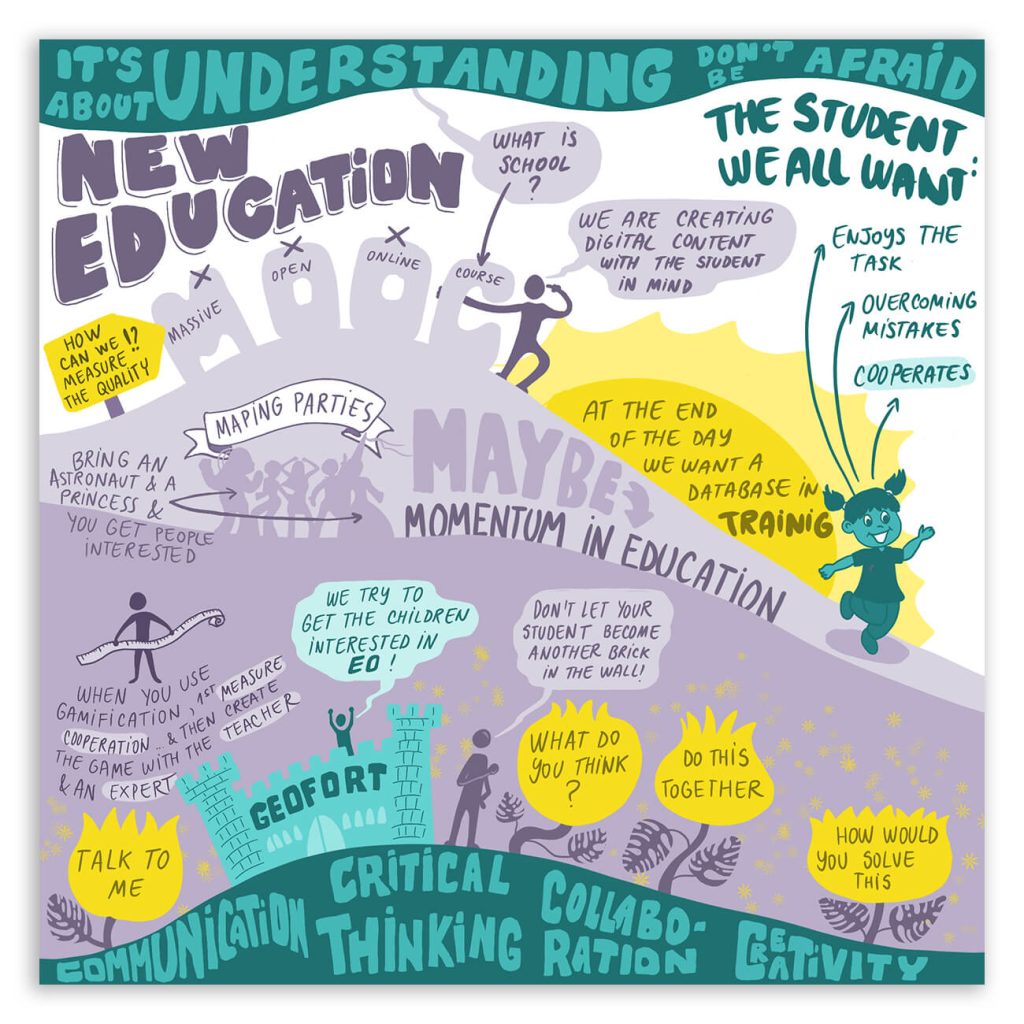 IT'S
ABOUT UNDERSTANDING
DON'T
BE AFRAID
NEW
EDUCATION
WHAT IS
SCHOOL
?
THE STUDENT
WE ALL WANT:
WE ARE CREATING
DIGITAL CONTENT
WITH THE STUDENT
IN MIND
ENJOYS THE
TASK
OVERCOMING
MISTAKES
COOPERATES
MOOC
MASSIVE
OPEN
ONLINE
COURSE
HOW
CAN WE !?
MEASURE..
THE QUALITY
MAPING PARTIES
BRING AN
ASTRONAUT & A
PRINCESS &
YOU GET PEOPLE
INTERESTED
MAYBE
MOMENTUM IN EDUCATION
AT THE END
OF THE DAY
WE WANT A
DATABASE IN
TRAINIG
WHEN YOU USE
GAMIFICATION, 1ST MEASURE
COOPERATION ... & THEN CREATE
THE GAME WITH THE TEACHER
& AN EXPERT
WE TRY TO
GET THE CHILDREN
INTERESTED IN
EO!
DON'T LET YOUR
STUDENT BECOME
ANOTHER BRICK
IN THE WALL!
GEOFORT
TALK TO
ME
WHAT DO
YOU THINK
?
DO THIS
TOGETHER
HOW WOULD
YOU SOLVE
THIS
COMMUNICATION
CRITICAL
THINKING
COLLABO-
RATION
CREATIVITY